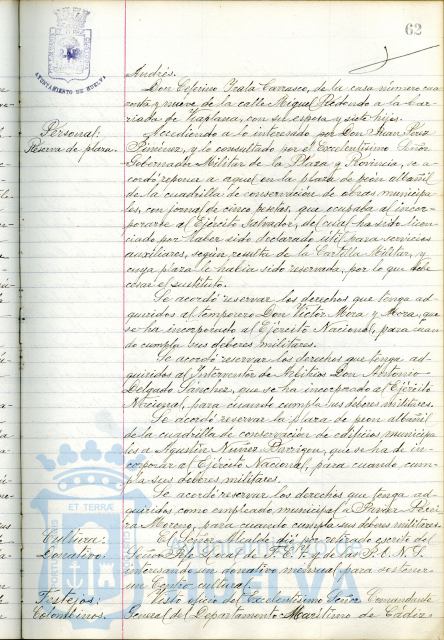 62
AYUNTAMIENTO DE HUELVA
Andrés.
Don Ceferino Carrasco, de la casa número cua
renta y nueve de la calle Miguel Redondo a la bar
riada de Viaplana, con su esposa y siete hijos.
Personal:
Reserva de plaza.
Accediendo a lo interesado por Don Juan Pérez
Jiménez, y lo consultado por el Excelentísimo Señor
Gobernador Militar de la Plaza y Provincia, se a-
cordó reponer a aquel en la plaza de peón albañil
de la cuadrilla de conservación de obras municipa-
les, con jornal de cinco pesetas, que ocupaba al incor-
porarse al Ejército Salvador, del cual ha sido licen-
ciado por haber sido declarado útil para servicios
auxiliares, según resulta de la Cartilla Militar, y
cuya plaza le había sido reservada, por lo que debe
cesar el sustituto.
Se acordó reservar los derechos que tenga ad-
quiridos al temporero Don Víctor Mora y Mora, que
se ha incorporado al Ejército Nacional, para cuan
do cumpla sus deberes militares.
Se acordó reservar los derechos que tenga ad-
quiridos al Interventor de Arbitrios Don Antonio
Delgado Sánchez, que se ha incorporado al Ejército
Nacional, para cuando cumpla sus deberes militares.
Se acordó reservar la plaza de peon albañil
de la cuadrilla de conservación de edificios municipa-
les a Agustín Núñez que se ha de in-
corporar al Ejército Nacional, para cuando cum-
pla sus deberes militares.
Se acordó reservar los derechos que tenga ad-
quiridos como empleado municipal a
Moreno, para cuando cumpla sus deberes militares
Cultura:
Donativo.
El Señor Alcalde dió por retirado escrito del
Señor Jefe Local de F.E.T. y de las J.O.N.S.
interesando un donativo mensual para sostener
un Centro cultural.
Festejos:
Colombinos.
Visto oficio del Excelentísimo Señor Comandante
General del Departamento Marítimo de Cádiz
ET TERRÆ
HUELVA